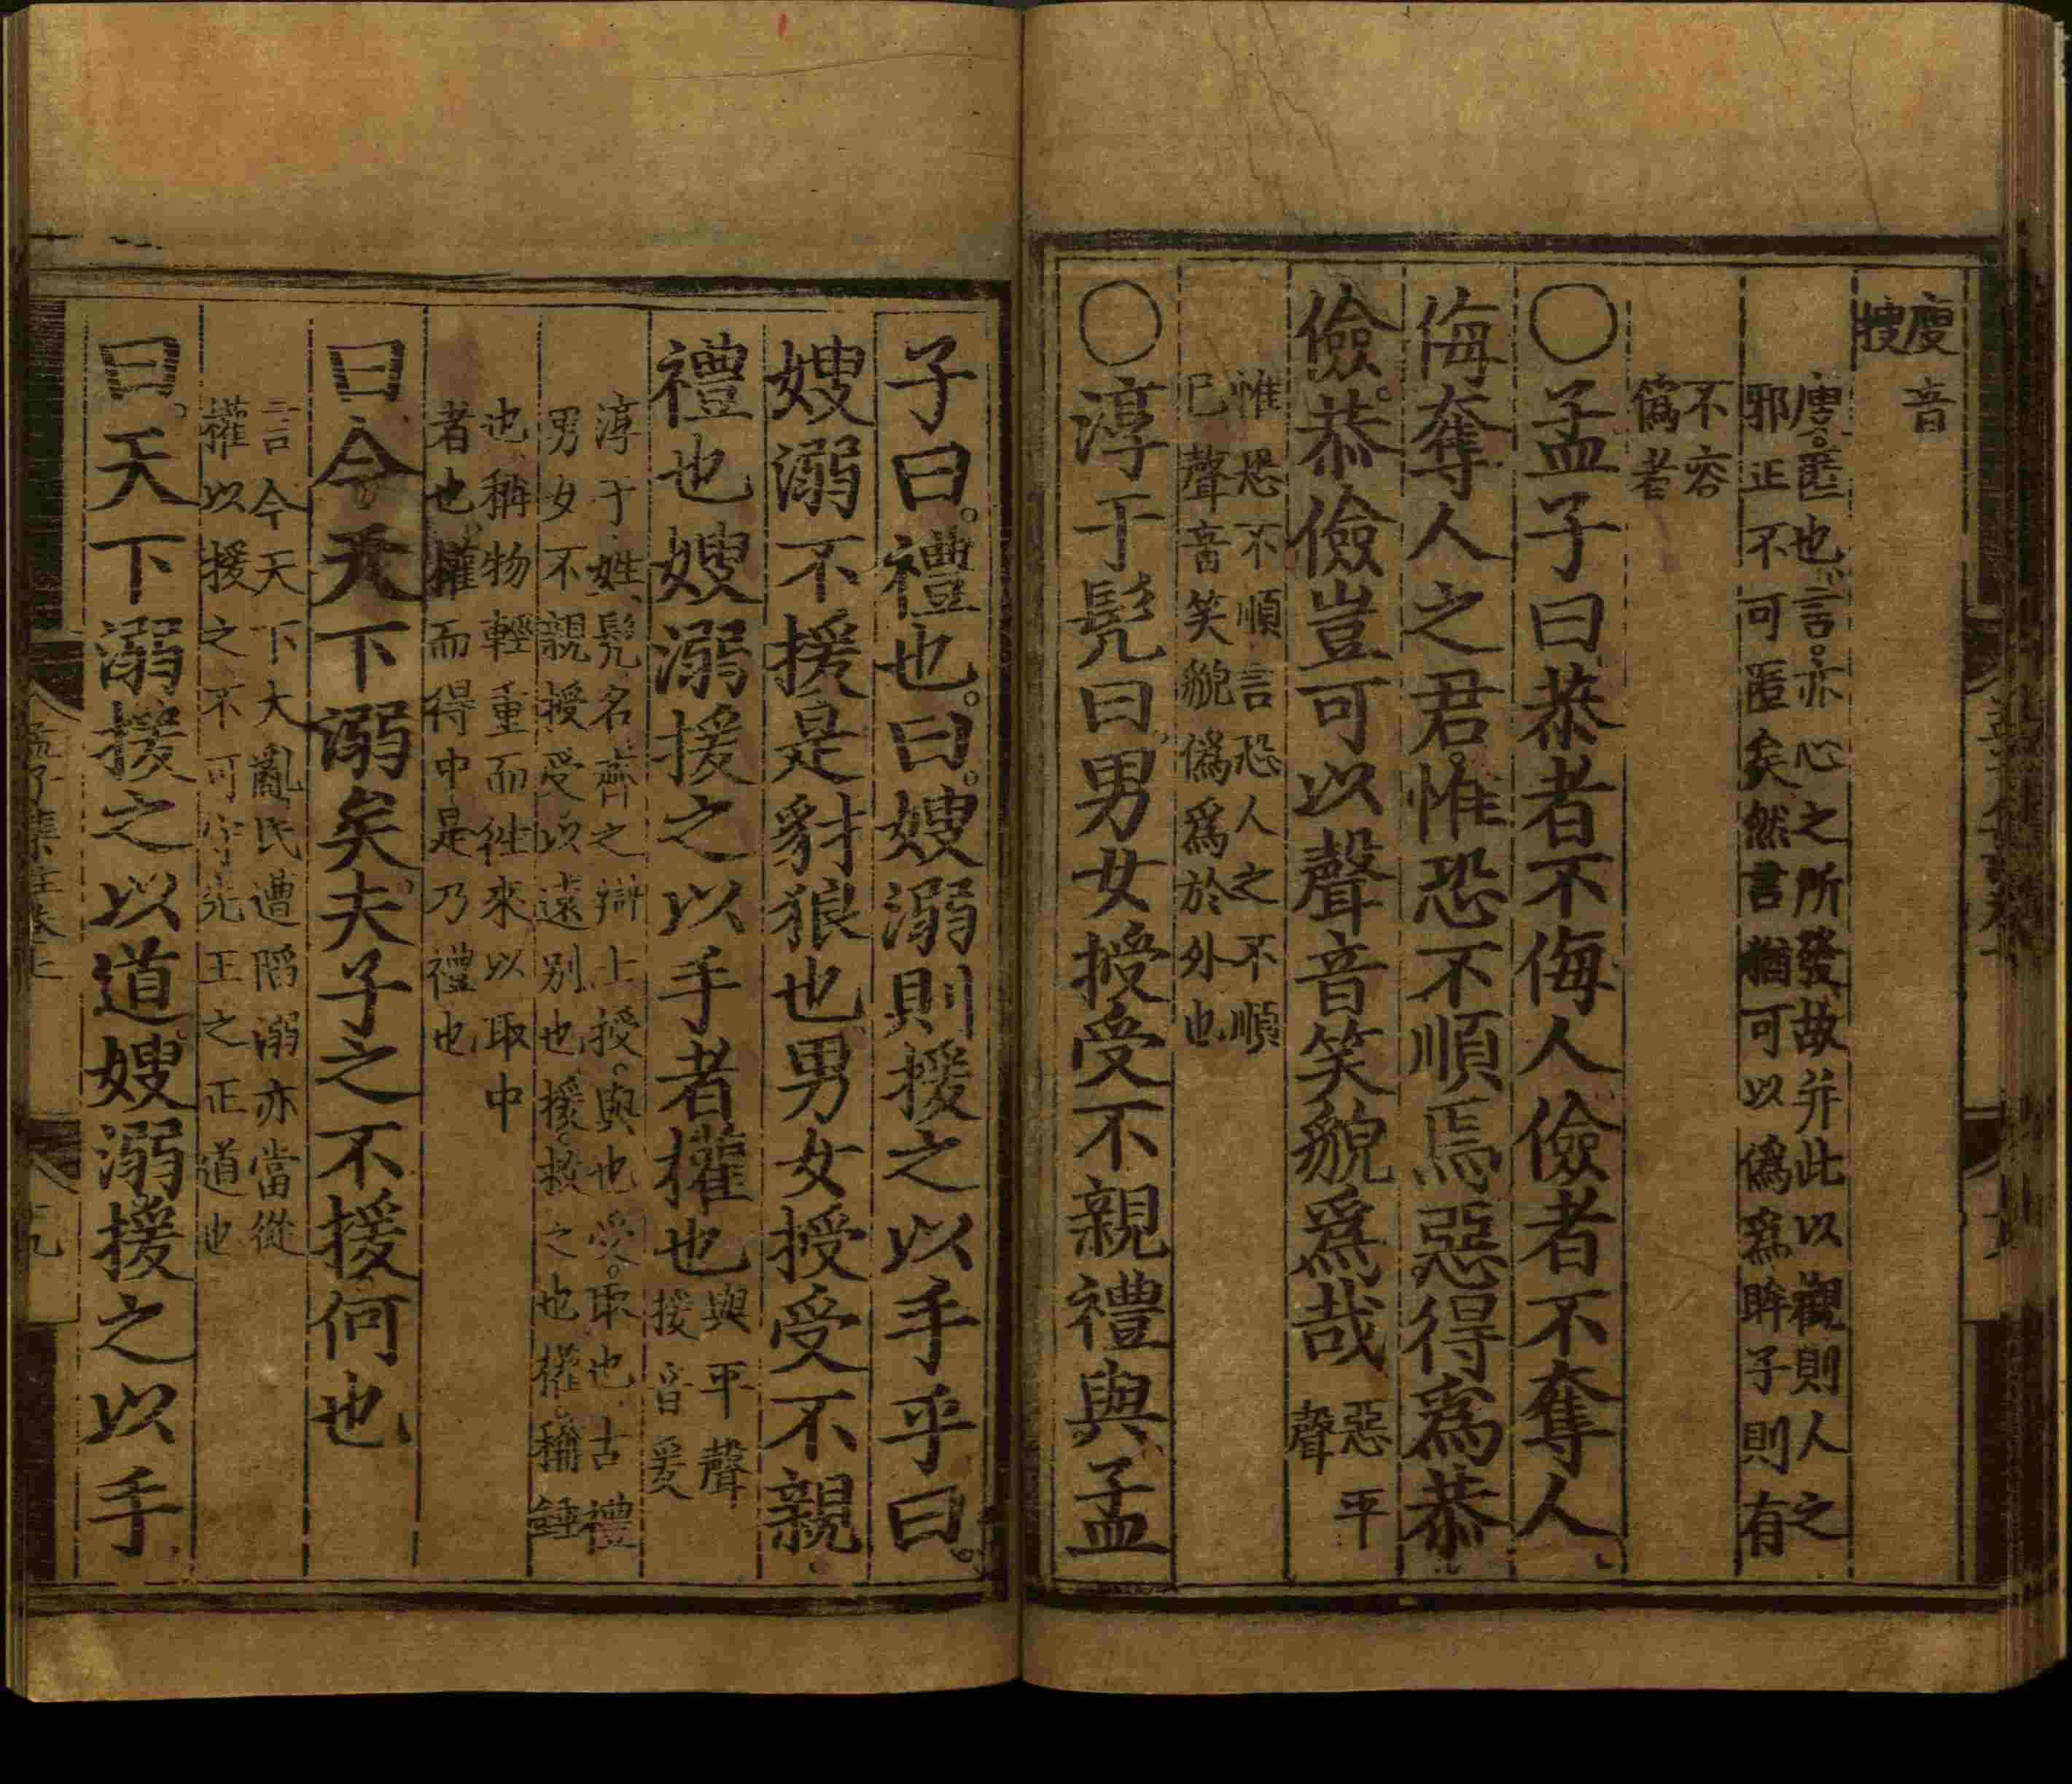 廋音
搜
廋。匿也。言。亦心之所發故并此以觀則人之
邪正不可匿矣然言猶可以僞爲眸子則有
不容
僞者
○孟子曰恭者不侮人儉者不奪人。
侮奪人之君。惟恐不順焉惡得爲恭
儉。恭儉豈可以聲音笑貌爲哉
惡平
聲
惟恐不順言恐人之不順
已聲音笑貌僞爲於外也
○淳于髡曰男女授受不親禮與孟
子曰。禮也。曰。嫂溺則援之以手乎曰。
嫂溺不援是豺狼也男女授受不親
禮也嫂溺援之以手者權也
與平聲
援音爰
淳于姓髡名齊之辯士授。與也受。取也古禮
男女不親授受以遠别也援。救之也權。稱錘
也稱物輕重而徃來以取中
者也權而得中是乃禮也
曰今天下溺矣。夫子之不援何也
言今天下大亂民遭陷溺亦當從
權以援之不可守先王之正道也
曰。天下溺援之以道。嫂溺援之以手
孟子集註卷七